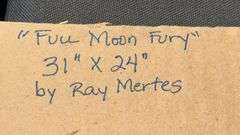 "Full Moon Fury"
31" X 24"
by Ray Mertes